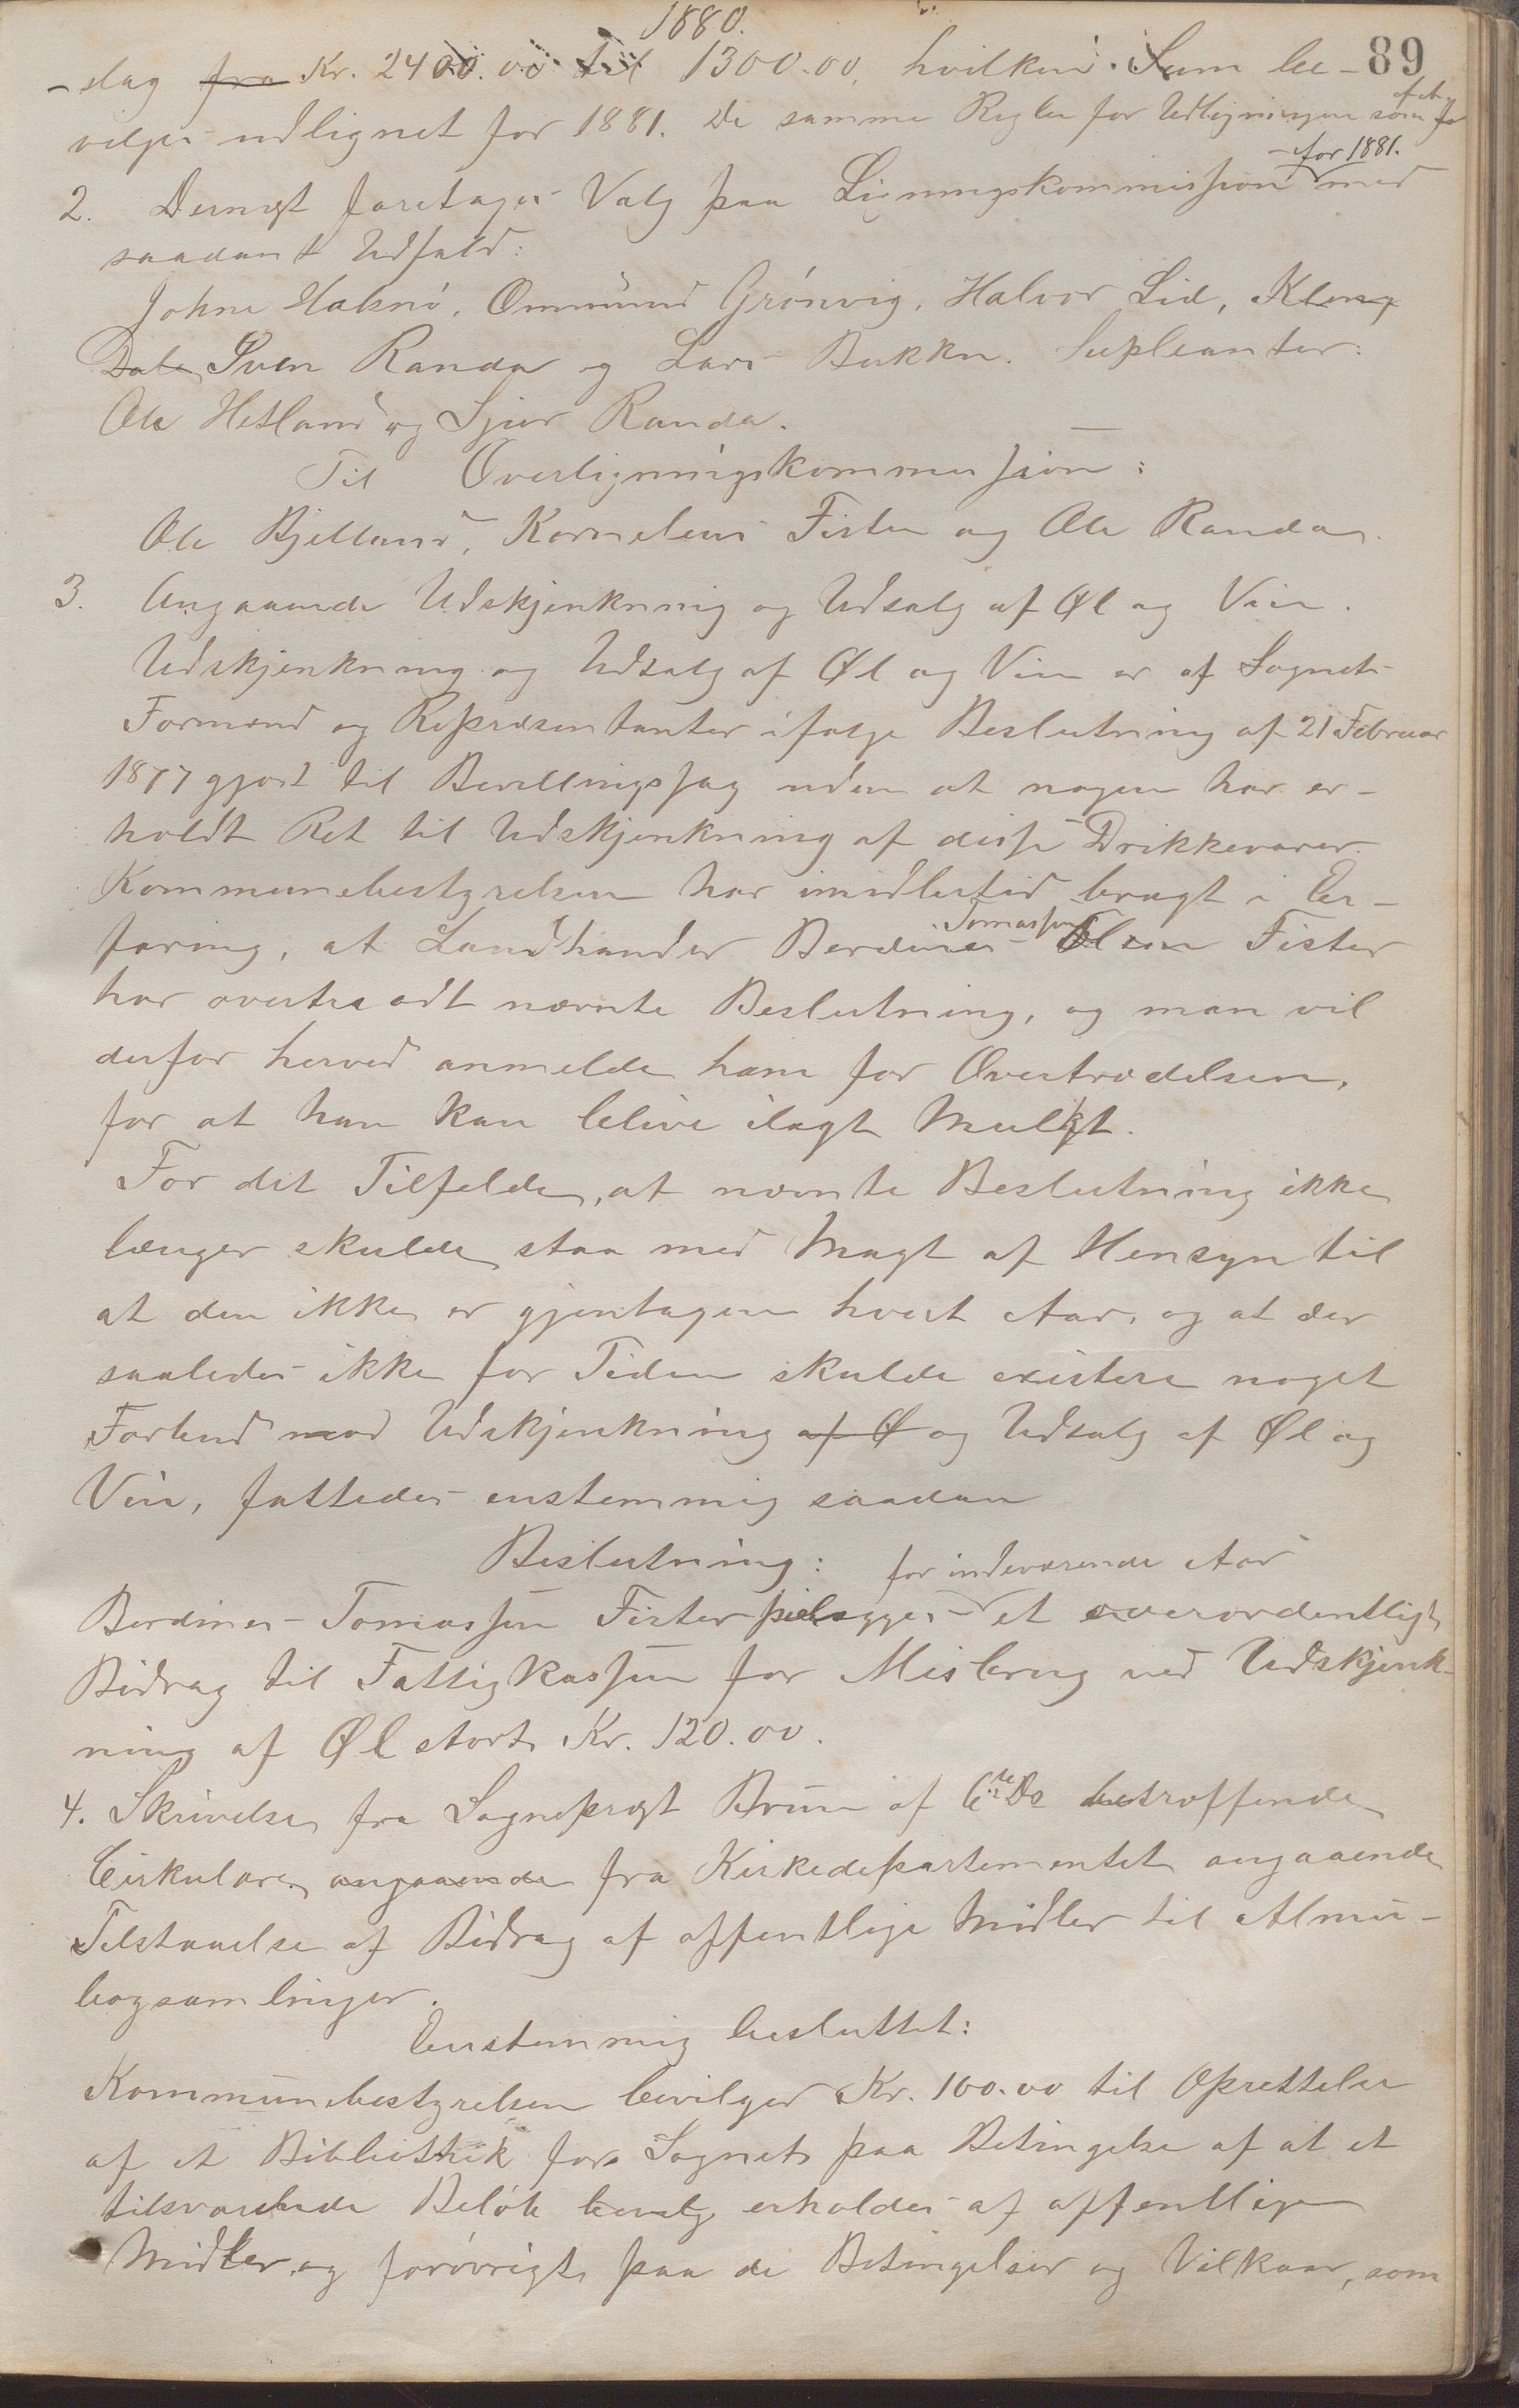 1880.
89
-slag fra Kr. 2400.00 til 1300.00, hvilken Sum be-
vilges udlignet for 1881. De samme Regler for Udligningen som for
2. Dernæst foretages Valg paa Ligningskommission for 1881. med
saadant Udfald:
Johne Halsnø, Ommund Grønvig, Halvor Lid, Kleng
Dale, Sven Randa og Lars Bukkn. Supleanter:
Ole Hetland og Sjur Randa.
Til Overligningskommission:
Ole Bjelland, Kornelius Fister og Ole Randa.
3. Angaaende Udskjenkning og Udsalg af Øl og Vin.
Udskjenkning og Udsalg af Øl og Vin er af Sognets
Formænd og Repræsentanter ifølge Beslutning af 21 Februar
1877 gjort til Bevillingssag uden at nogen har er-
holdt Ret til Udskjenkning af disse Drikkevarer.
Kommunebestyrelsen har imidlertid bragt i Er-
faring, at Landhandler Berdines Tomassen Olsen Fister
har overtraadt nævnte Beslutning, og man vil
derfor herved anmelde ham for Overtrædelsen,
for at han kan blive ilagt Mulkt.
For det Tilfelde, at nævnte Beslutning ikke
længer skulde staa med Magt af Hensyn til
at den ikke er gjentagen hvert Aar, og at der
saaledes ikke for Tiden skulde existere noget
Forbud mod Udskjenkning af Ø og Udsalg af Øl og
Vin, fattedes enstemmig saadan
Beslutning:
Berdines Tomassen Fister pielægges for indeværende Aar et overordentligt
Bidrag til Fattigkassen for Misbrug ved Udskjenk-
ning af Øl stort Kr. 120.00.
4. Skrivelse fra Sogneprest Brun af 6te Ds betreffende
Cirkulære angaaende fra Kirkedepartementet angaaende
Tilstaaelse af Bidrag af offentlige Midler til Almue-
bogsamlinger.
Enstemmig besluttet:
Kommunebestyrelsen bevilger Kr. 100.00 til Oprettelse
af et Bibliothek for Sognet paa Betingelse af at et
tilsvarende Beløb bevilg erholdes af offentlige
Midler og forøvrigt paa de Betingelser og Vilkaar, som